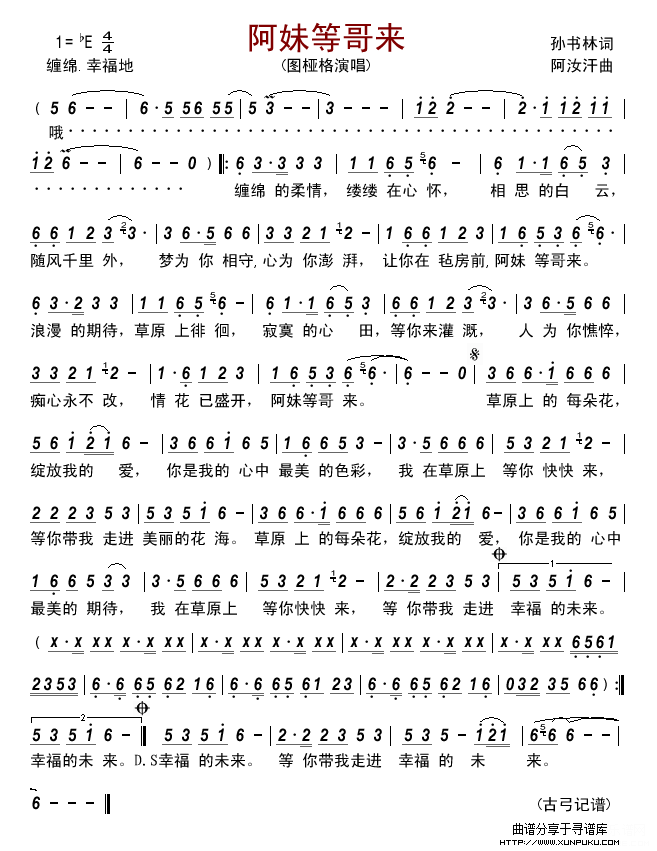 阿妹等哥来
1=♭E 4/4
孙书林词
缠绵.幸福地
(图桠格演唱)
阿汝汗曲
( 5 6 - - | 6·5 56 55 | 5 3 - - | 12 2 - - | 2·1 12 11 |
哦·······························
12 6 - - | 6 - - 0 ) ‖: 6 3·3 3 3 | 1 1 6 5 5 6 - | 6 1·1 6 5 3 |
缠绵 的柔情，缕缕在心怀，相思的白云，
6 6 1 2 3 2 3· | 3 6·5 6 6 | 3 3 2 1 1 2 - | 1 6 6 1 2 3 | 1 6 5 3 6 5 6· |
随风千里外，梦为你相守,心为你澎湃，让你在毡房前,阿妹等哥来。
6 3·2 3 3 | 1 1 6 5 5 6 - | 6 1·1 6 5 3 | 6 6 1 2 3 2 3· | 3 6·5 6 6 |
浪漫的期待，草原上徘徊，寂寞的心田，等你来灌溉，人为你憔悴，
3 3 2 1 1 2 - | 1·6 1 2 3 | 1 6 5 3 6 5 6· | 6 - - 0 | 3 6 6·1 6 6 |
痴心永不改，情花已盛开，阿妹等哥来。草原上的每朵花，
5 6 1 2 1 6 - | 3 6 6 1 6 5 | 1 6 6 5 3 | 3·5 6 6 6 | 5 3 2 1 1 2 - |
绽放我的爱，你是我的心中最美的色彩，我在草原上等你快快来，
2 2 2 3 5 3 | 5 3 5 1 6 - | 3 6 6·1 6 6 | 5 6 1 2 1 6 - | 3 6 6 1 6 5 |
等你带我走进美丽的花海。草原上的每朵花，绽放我的爱，你是我的心中
1 6 6 5 3 3 | 3·5 6 6 6 | 5 3 2 1 1 2 - | 2·2 2 3 5 3 | 1 5 3 5 1 6 - |
最美的期待，我在草原上等你快快来，等你带我走进幸福的未来。
( x·x xx x·x xx | x·x xx x·x xx | x·x xx x·x xx | x·x x·x x·x 6561 |
2353 | 6·6 65 62 16 | 6·6 65 61 23 | 6·6 65 62 16 | 032 35 66 ) :‖
2
5 3 5 1 6 - ‖ 5 3 5 1 6 - | 2·2 2 3 5 3 | 5 3 5 - 121 | 6 6 - - |
幸福的未来。D.S幸福的未来。等你带我走进幸福的未来。
6 - - - ‖
(古弓记谱)
曲谱分享于寻谱库
HTTP://WWW.XUNPUKU.COM